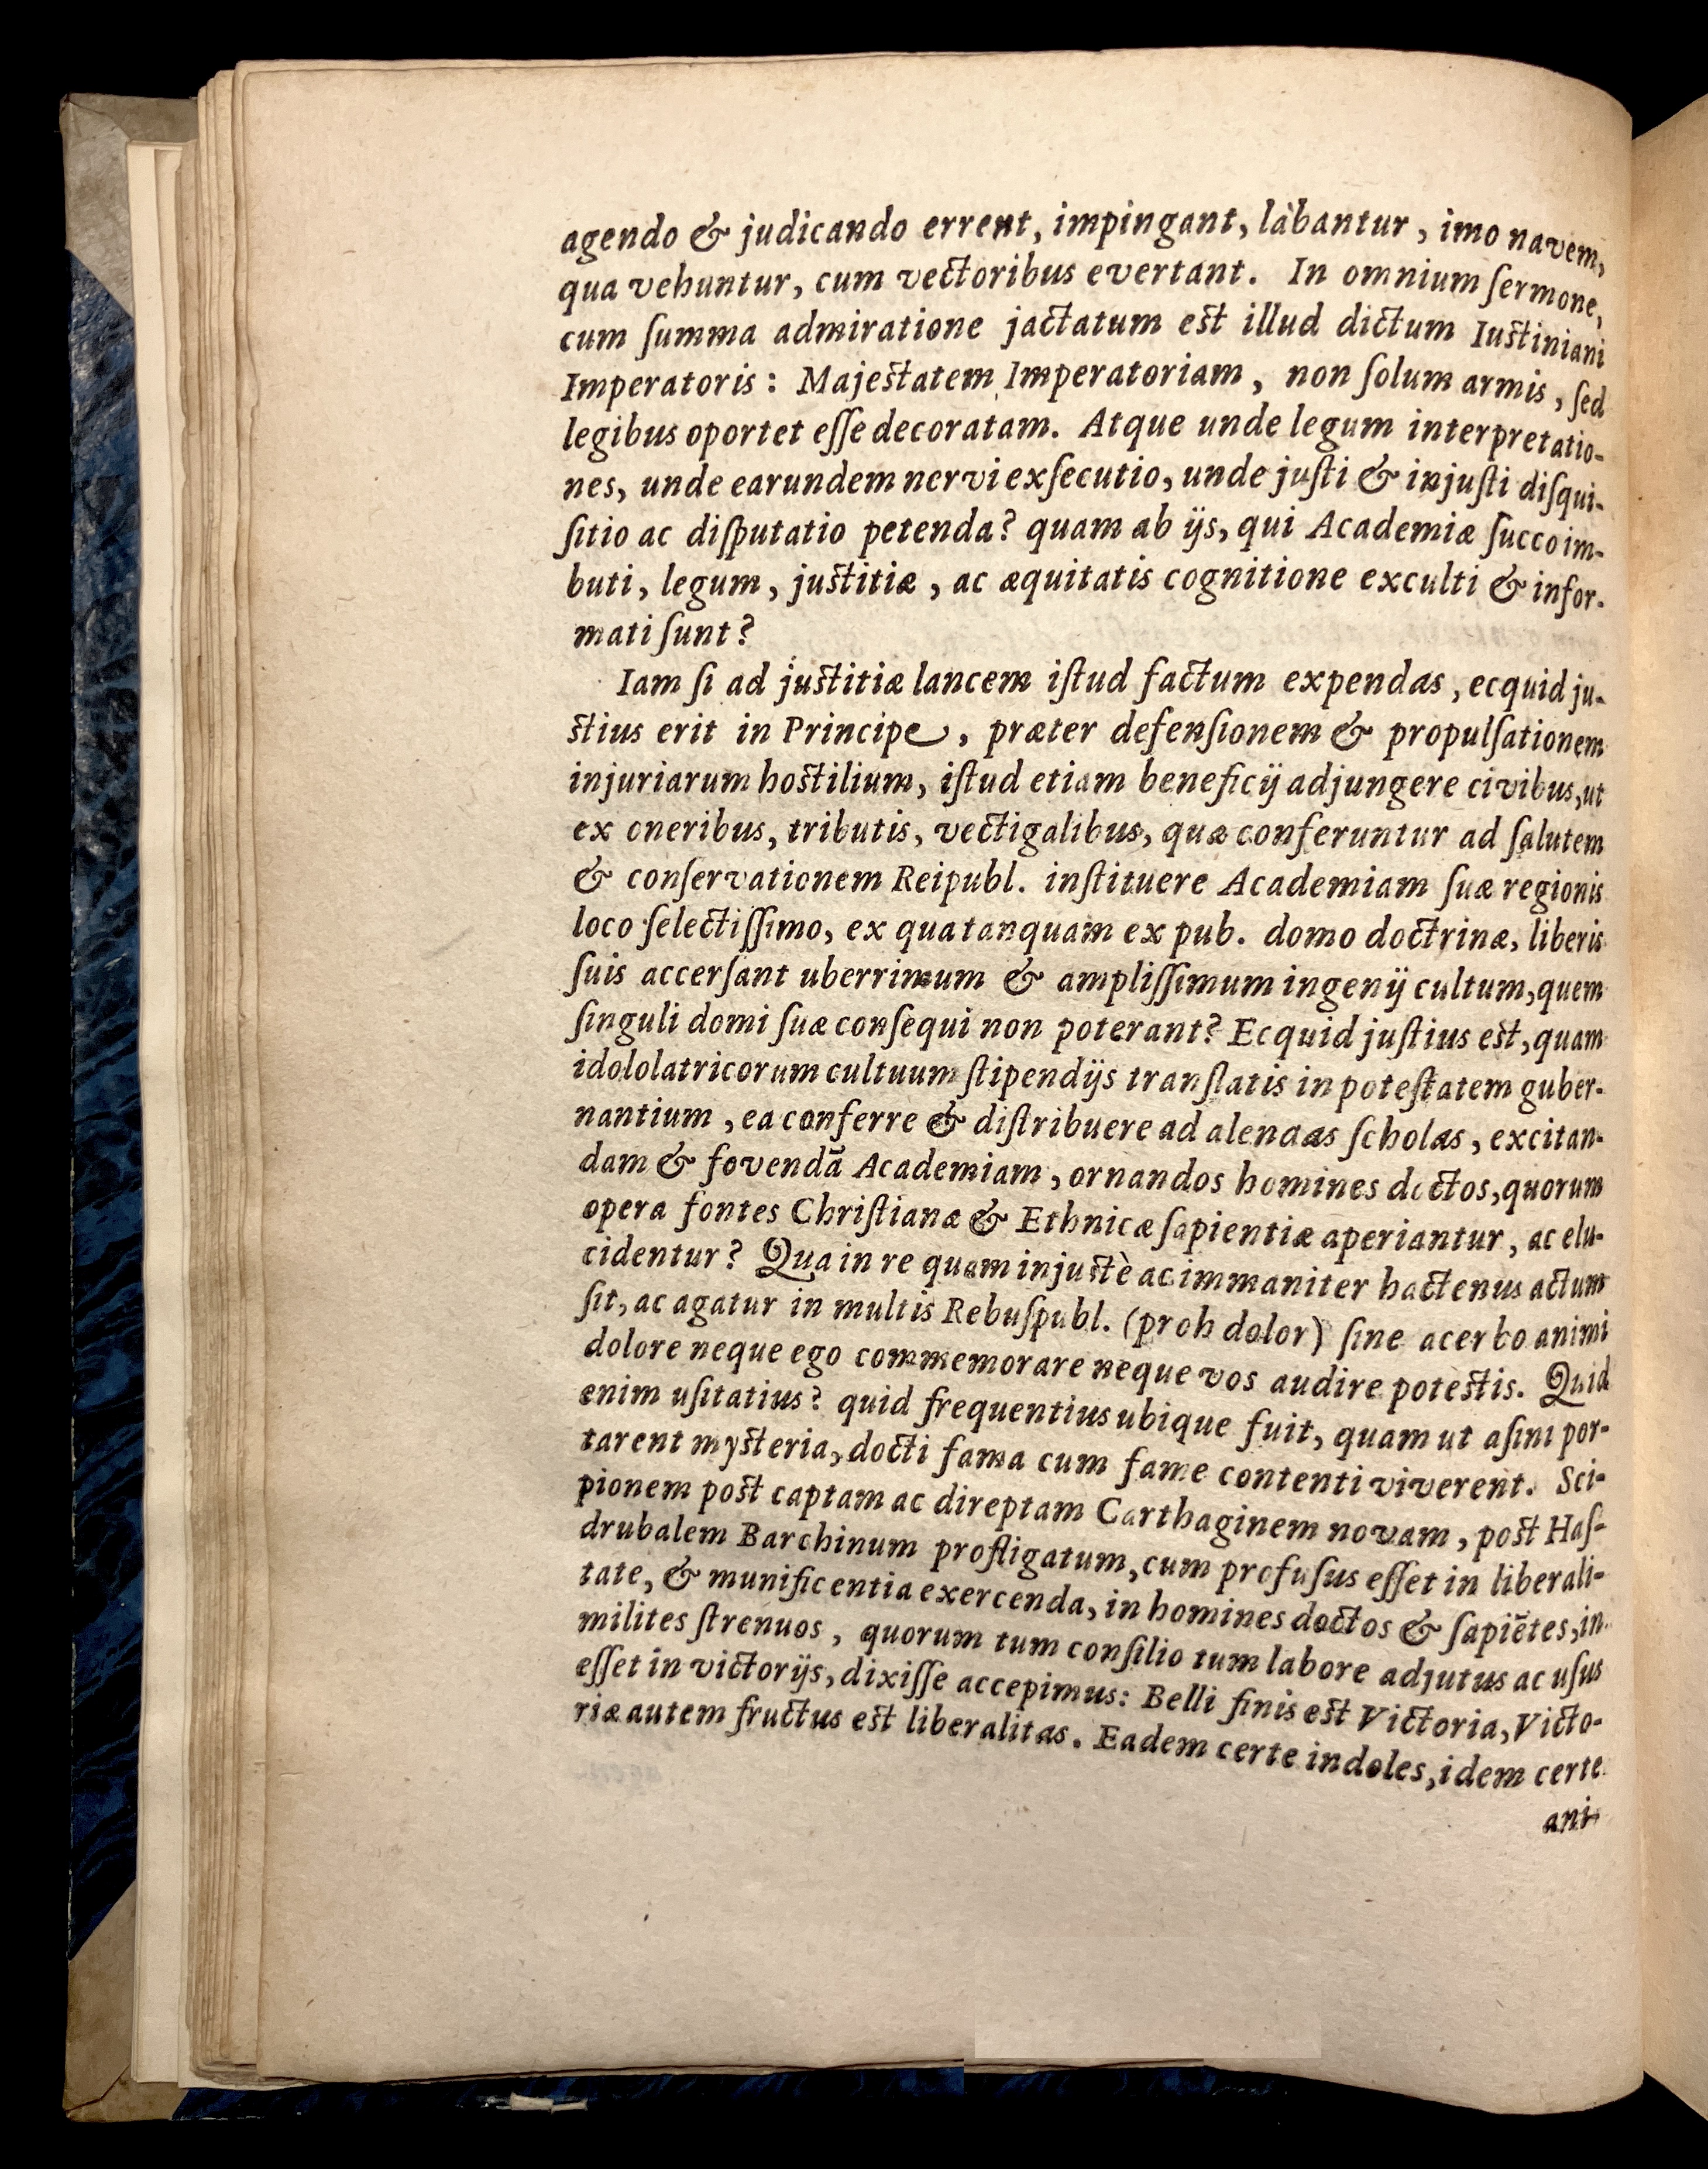 agendo & judicando errent, impingant, làbantur, imo navem,
qua vehuntur, cum vectoribus evertant. In omnium ſermone,
cum ſumma admiratione jactatum est illud dictum Iustiniani
Imperatoris: Majestatem Imperatoriam, non ſolum armis, ſed
legibus oportet eſſe decoratam. Atque unde legum interpretatio-
nes, unde earundem nervi exſecutio, unde juſti & injuſti diſqui-
ſitio ac diſputatio petenda? quam ab ijs, qui Academiæ ſucco im-
buti, legum, justitiæ, ac æquitatis cognitione exculti & infor-
mati ſunt?
Iam ſi ad justitiæ lancem iſtud factum expendas, ecquid ju-
stius erit in Principe, præter defenſionem & propulſationem
injuriarum hostilium, iſtud etiam beneficij adjungere civibus, ut
ex oneribus, tributis, vectigalibus, quæ conferuntur ad ſalutem
& conſervationem Reipubl. inſtituere Academiam ſuæ regionis
loco ſelectiſſimo, ex qua tanquam ex pub. domo doctrinæ, liberis
ſuis accerſant uberrimum & ampliſſimum ingenij cultum, quem
ſinguli domi ſuæ conſequi non poterant? Ecquid juſtius est, quam
idololatricorum cultuum ſtipendijs tranſlatis in poteſtatem guber-
nantium, ea conferre & diſtribuere ad alendas ſcholas, excitan-
dam & fovendā Academiam, ornandos homines doctos, quorum
opera fontes Chriſtianæ & Ethnicæ ſapientiæ aperiantur, ac elu-
cidentur? Qua in re quam injustè ac immaniter hactenus actum
ſit, ac agatur in multis Rebuſpubl. (proh dolor) ſine acerbo animi
dolore neque ego commemorare neque vos audire potestis. Quid
enim uſitatius? quid frequentius ubique fuit, quam ut aſini por-
tarent mysteria, docti fama cum fame contenti viverent. Sci-
pionem post captam ac direptam Carthaginem novam, post Haſ-
drubalem Barchinum profligatum, cum profuſus eſſet in liberali-
tate, & munificentia exercenda, in homines doctos & ſapiētes, in
milites ſtrenuos, quorum tum conſilio tum labore adjutus ac uſus
eſſet in victorijs, dixiſſe accepimus: Belli finis est Victoria, Victo-
riæ autem fructus est liberalitas. Eadem certe indoles, idem certe
ani-